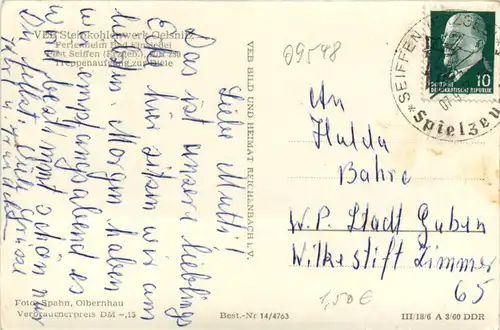 VEB Steinkohlenwerk Oelsnitz
Ferienheim Bad Einsiedel
Post Seiffen (Erzgeb.)
Treppenaufgang zur Diele
Liebe Mutti!
Das ist unsere Lieblings
Ecke hier sitzen wir am
Morgen haben
wir
wird bestimmt schön
Du fehlst. Viele Grüße
VEB BILD UND HEIMAT REICHENBACH i. V.
09548
SEIFFEN
Spielzeu
10
DEUTSCHE
DEMOKRATISCHE REPUBLIK
An
Hulda
Bahre
W.P. Stadt Guben
Wilkestift Zimmer
65
1,50 €
Foto: Spahn, Olbernhau
Verbraucherpreis DM -,15
Best.-Nr 14/4763
III/18/6 A 3/60 DDR